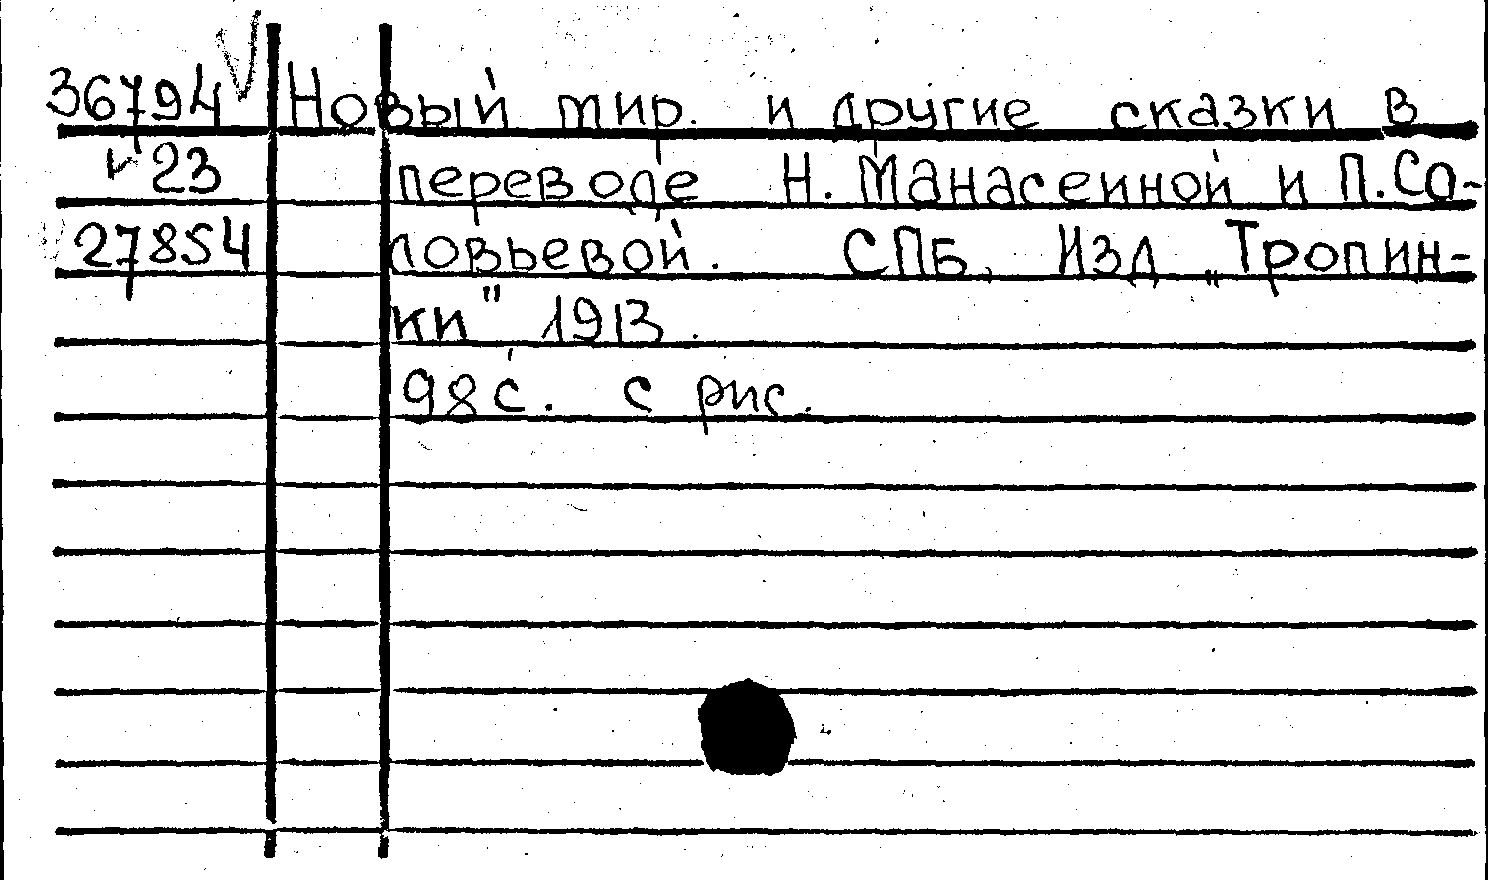 36794 Новый мир. и другие сказки в
23 переводе Н. Манасеиной и П. Со-
27854 ловьевой. СПБ, Изд „Тропин-
ки" 1913.
98 с. с рис.